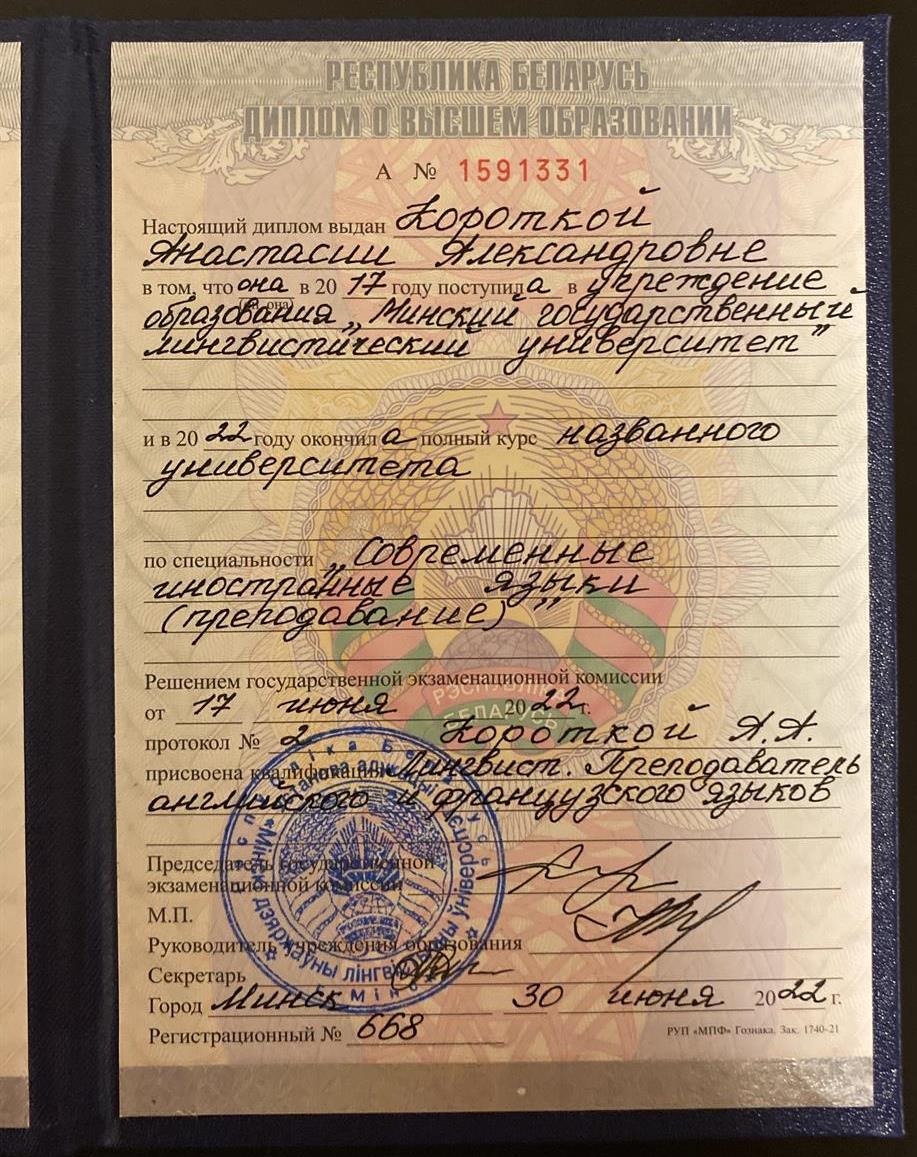 РЕСПУБЛИКА БЕЛАРУСЬ
ДИПЛОМ О ВЫСШЕМ ОБРАЗОВАНИИ
А № 1591331
Настоящий диплом выдан Короткой
Анастасии Александровне
в том, что она в 20 17 году поступила в учреждение
(он, она)
образования „Минский государственный
лингвистический университет"
и в 20 22 году окончила полный курс названного
университета
по специальности „Современные
иностранные языки
(преподавание)"
Решением государственной экзаменационной комиссии
от 17 июня 2022 г.
РЭСПУБЛІКА
БЕЛАРУСЬ
протокол № 2 Короткой А.А.
присвоена квалификация Лингвист. Преподаватель
английского и французского языков
Председатель государственной
экзаменационной комиссии
М.П.
Руководитель учреждения образования
Секретарь
Город Минск 30 июня 2022 г.
Регистрационный № 668
РУП «МПФ» Гознака. Зак. 1740-21